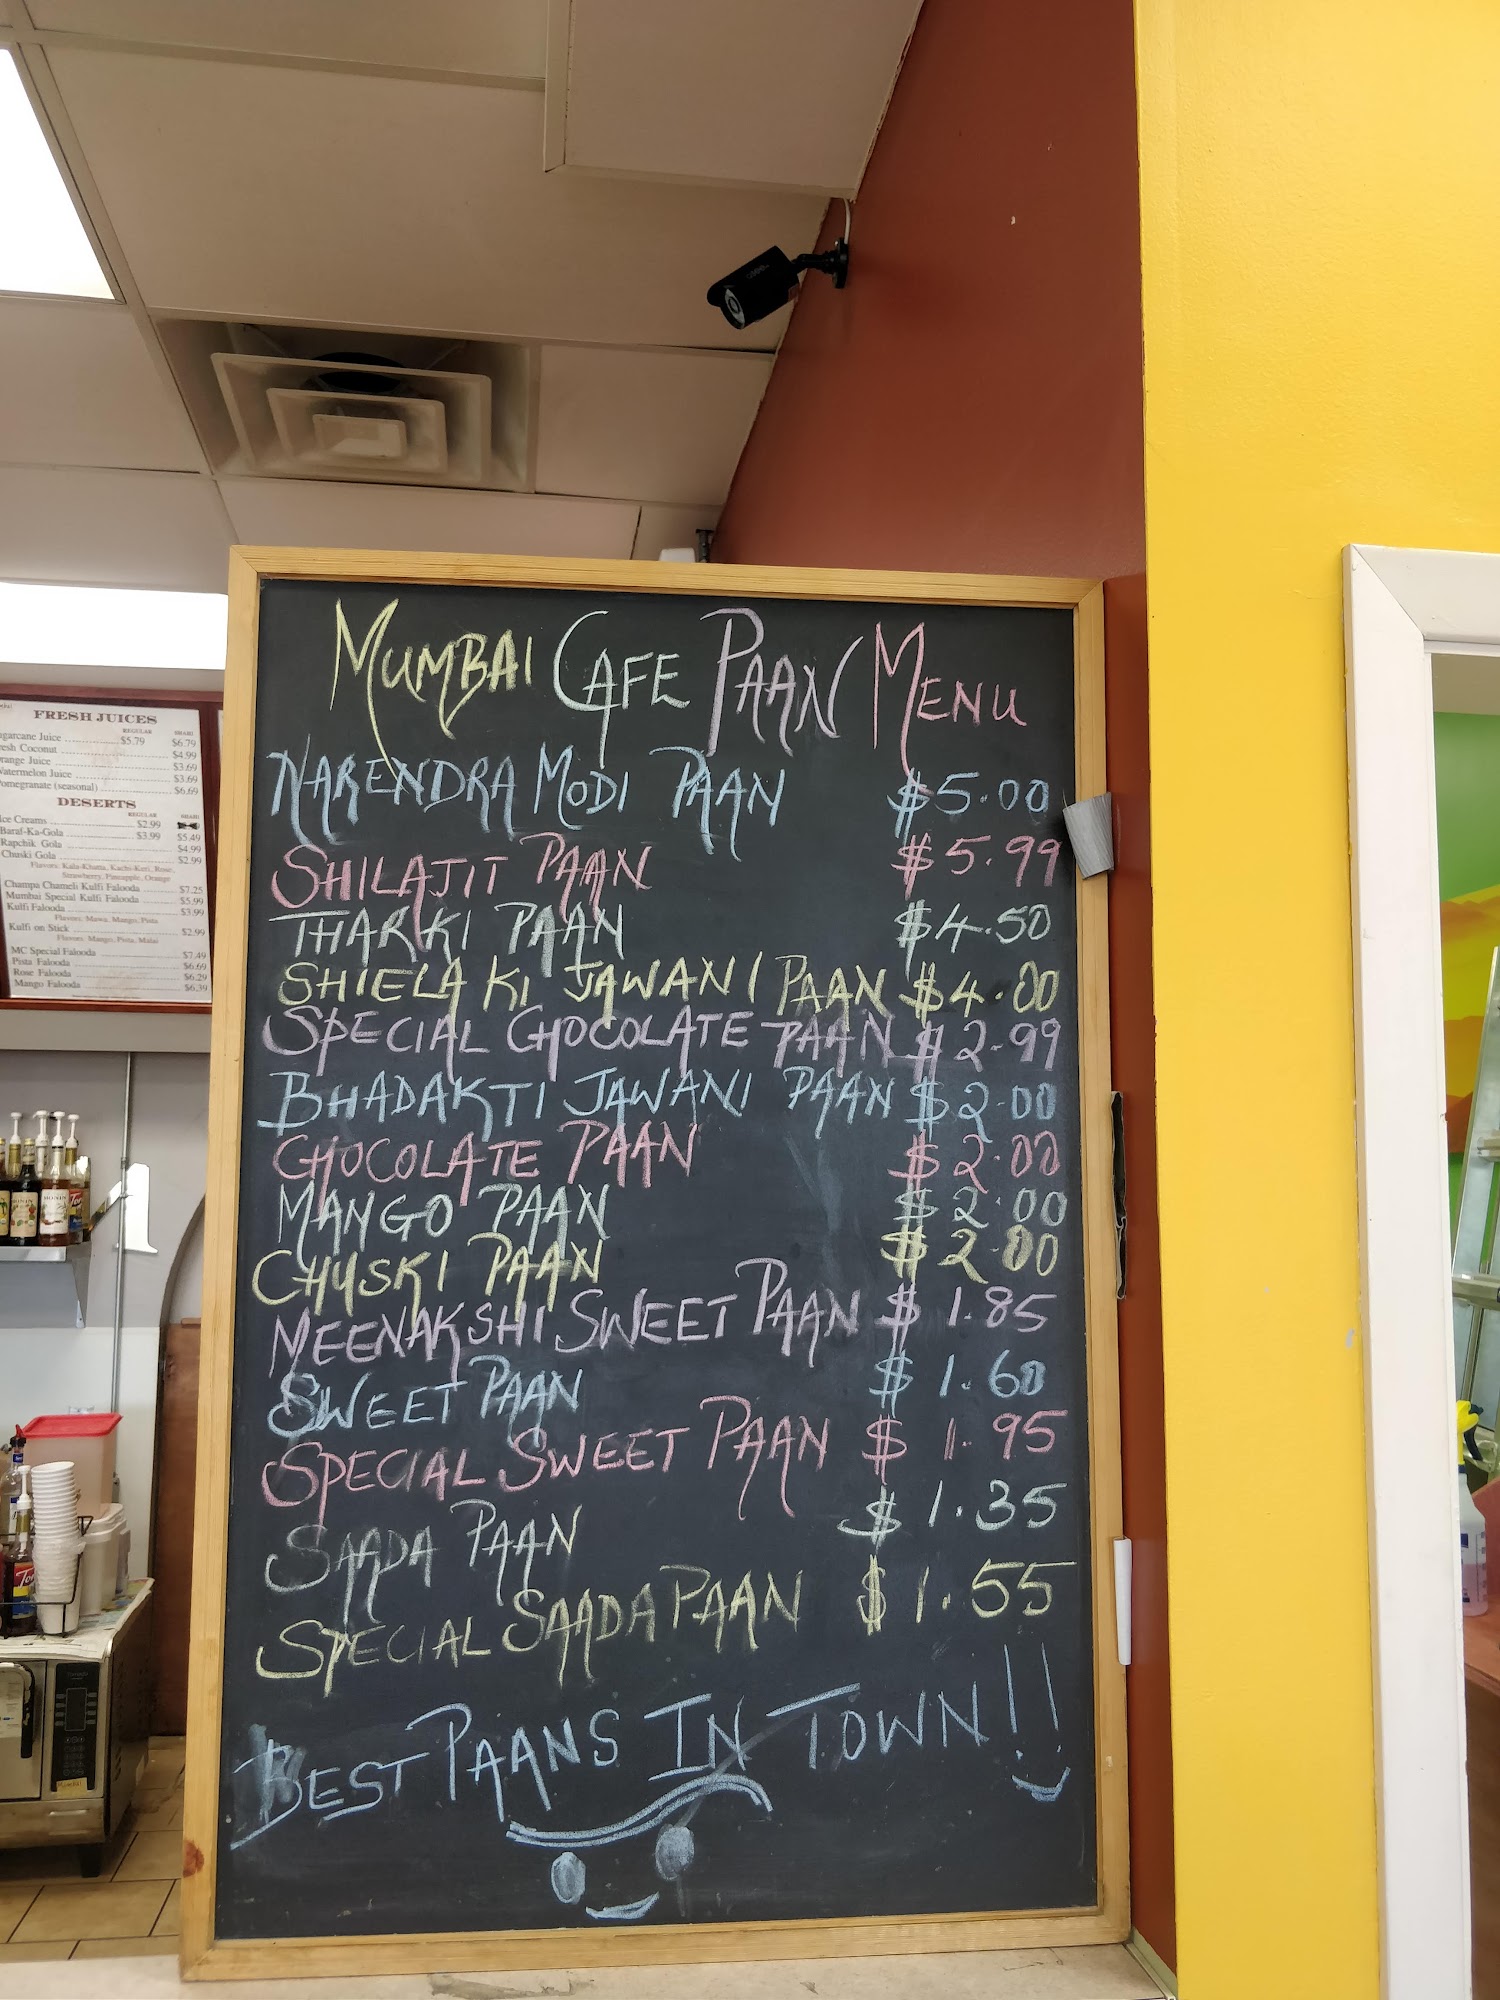 MUMBAI CAFE PAAN MENU
NARENDRA MODI PAAN $5.00
SHILAJIT PAAN $5.99
THARKI PAAN $4.50
SHIELA KI JAWANI PAAN $4.00
SPECIAL CHOCOLATE PAAN $2.99
BHADAKTI JAWANI PAAN $2.00
CHOCOLATE PAAN $2.00
MANGO PAAN $2.00
CHUSKI PAAN $2.00
MEENAKSHI SWEET PAAN $1.85
SWEET PAAN $1.60
SPECIAL SWEET PAAN $1.95
SAADA PAAN $1.35
SPECIAL SAADA PAAN $1.55
BEST PAANS IN TOWN!!
FRESH JUICES
REGULAR
$5.79 $6.79
Juice
Coconut $4.99
Juice $3.69
Juice $3.69
(seasonal) $6.69
DESERTS
REGULAR
Creams $2.99
Baraf-Ka-Gola $3.99 $5.49
Rapchik Gola $4.99
Chuski Gola $2.99
Flavors: Kala-Khatta, Kachi-Keri, Rose,
Strawberry, Pineapple, Orange
Champa Chameli Kulfi Falooda $7.25
Mumbai Special Kulfi Falooda $5.99
Kulfi Falooda $3.99
Flavors: Mawa, Mango, Pista
Kulfi on Stick $2.99
Flavors: Mango, Pista, Malai
MC Special Falooda $7.49
Pista Falooda $6.69
Rose Falooda $6.29
Mango Falooda $6.39